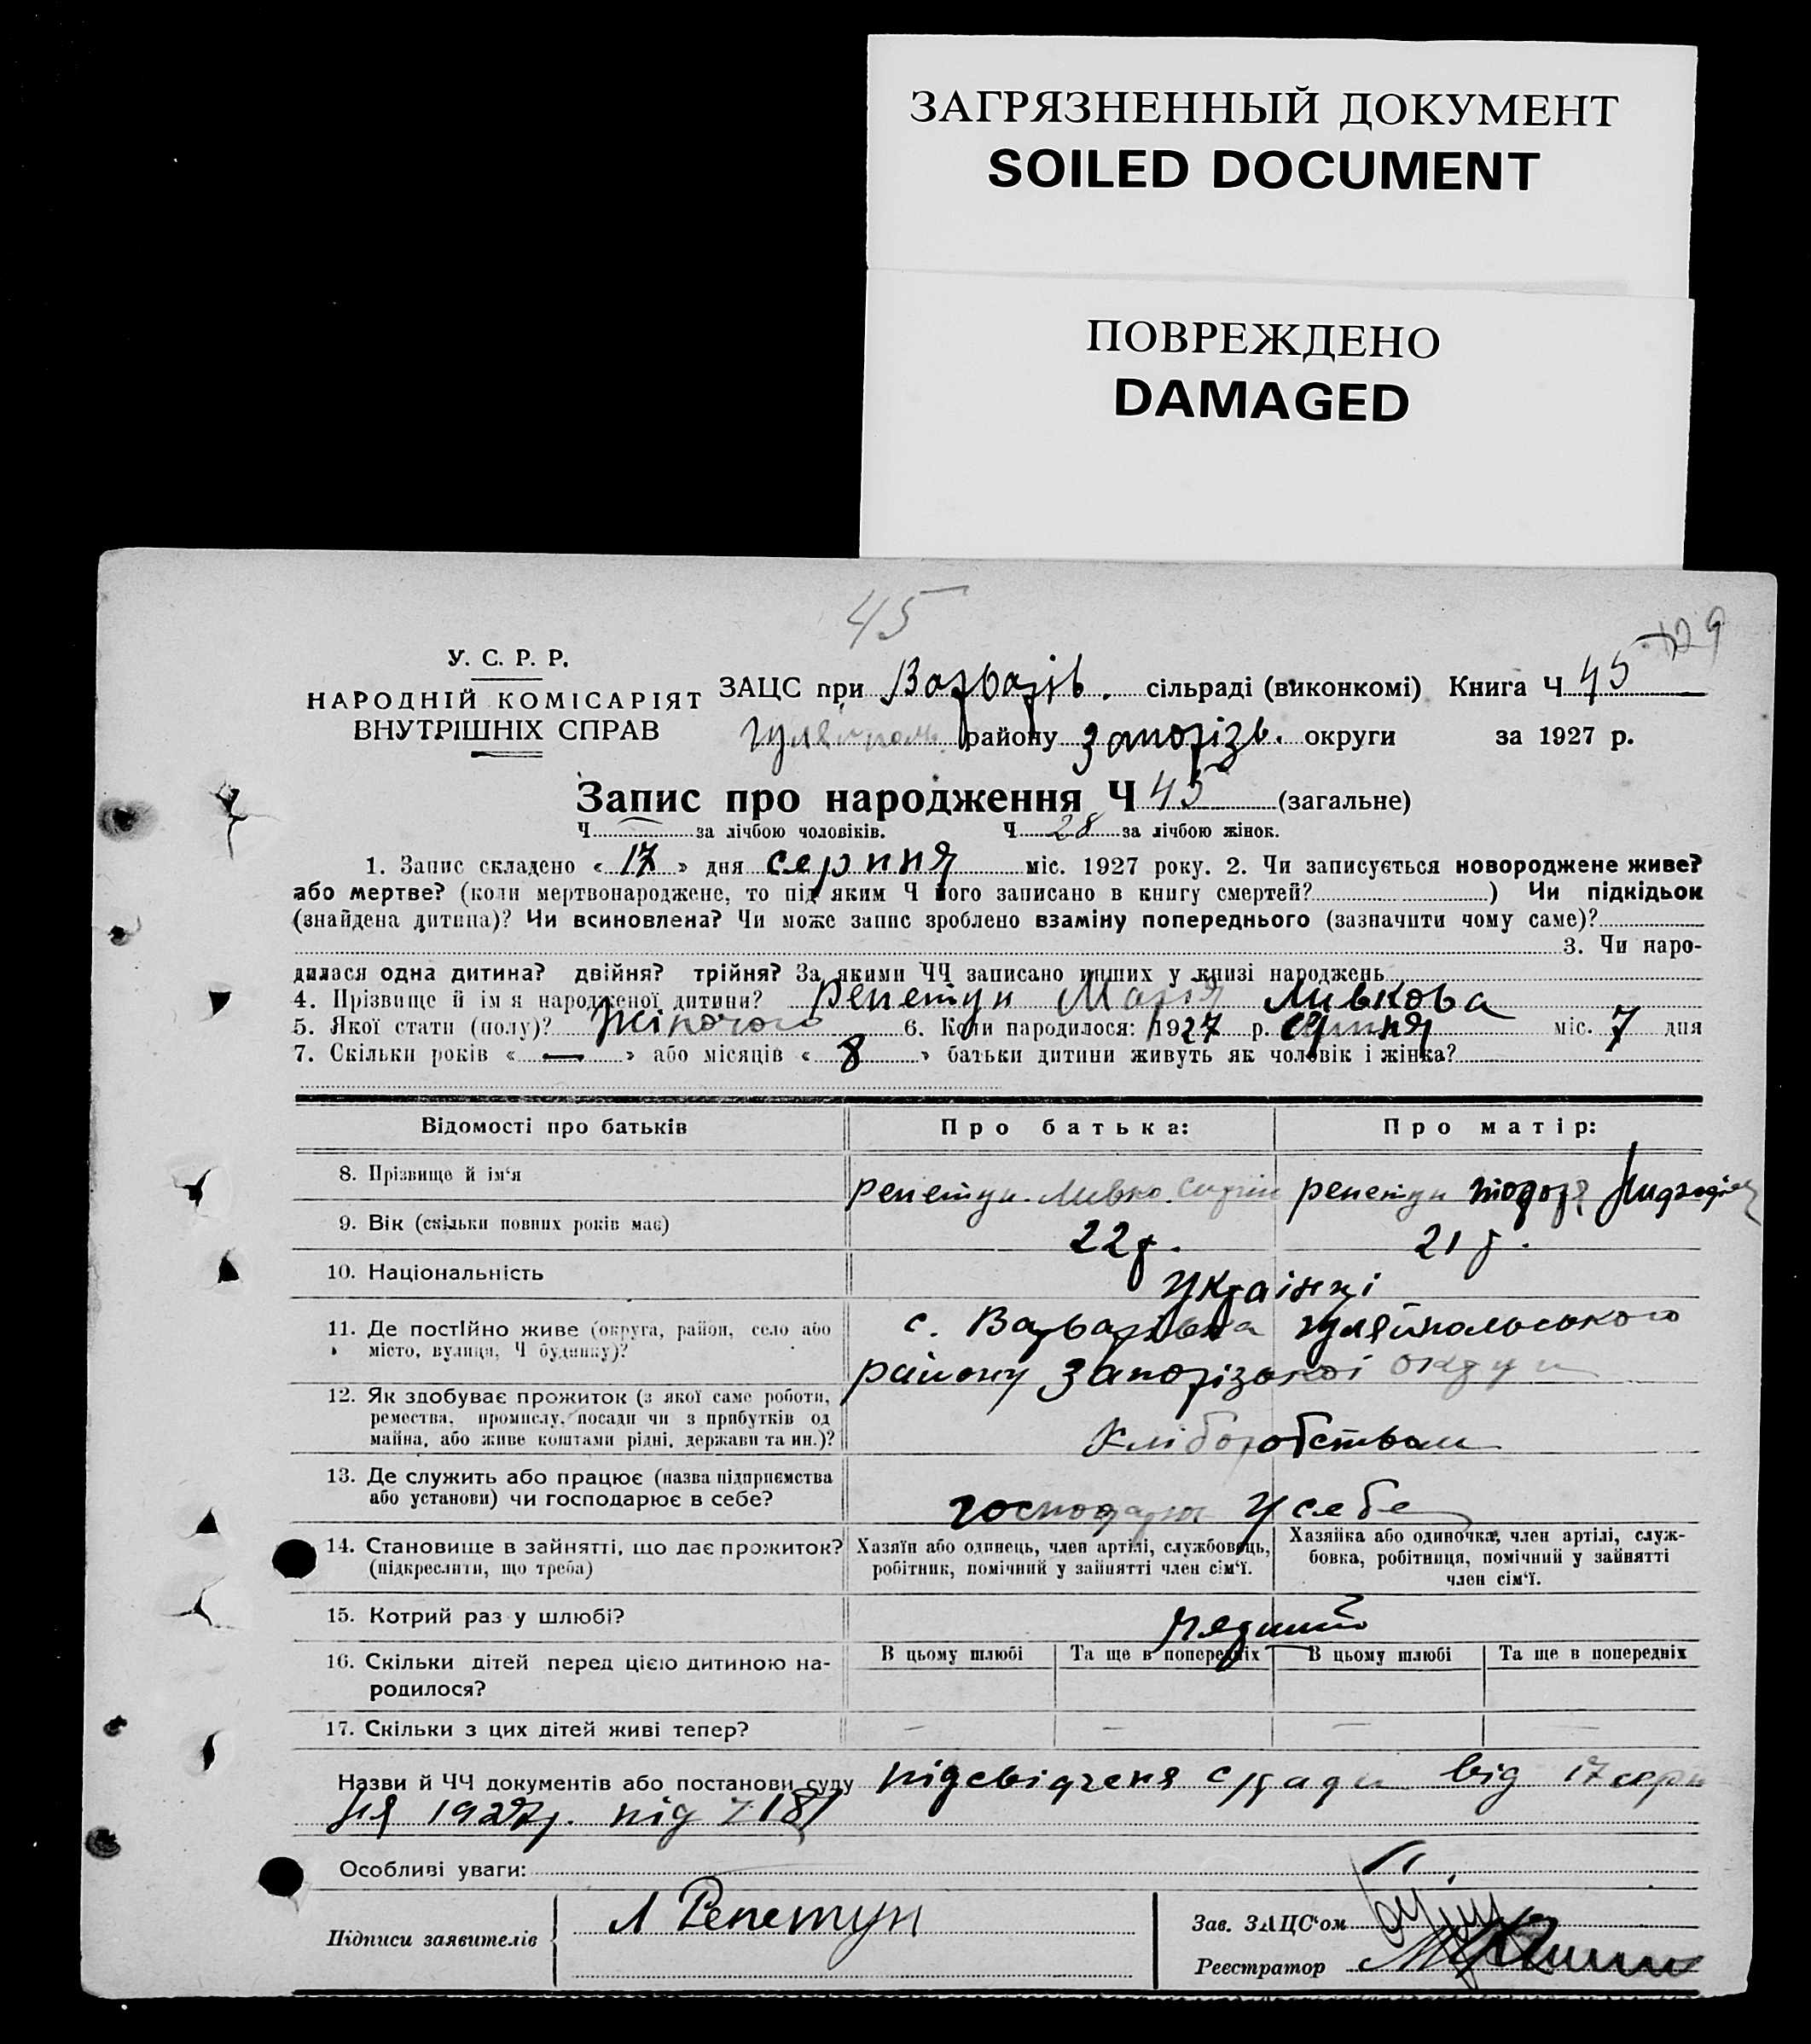 ЗАГРЯЗНЕННЫЙ ДОКУМЕНТ
SOILED DOCUMENT
ПОВРЕЖДЕНО
DAMAGED
45
129
У. С. Р. Р.
НАРОДНІЙ КОМІСАРІЯТ
ВНУТРІШНІХ СПРАВ
ЗАЦС при Варварів. сільраді (виконкомі) Книга Ч 45
Гуляйполь. району Запорізь. округи за 1927 р.
Запис про народження Ч 45 (загальне)
Ч — за лічбою чоловіків. Ч 28 за лічбою жінок.
1. Запис складено « 17 » дня серпня міс. 1927 року. 2. Чи записується новороджене живе?
або мертве? (коли мертвонароджене, то під яким Ч його записано в книгу смертей? ) Чи підкідьок
(знайдена дитина)? Чи всиновлена? Чи може запис зроблено взаміну попереднього (зазначити чому саме)?
3. Чи наро-
дилася одна дитина? двійня? трійня? За якими ЧЧ записано инших у книзі народжень
4. Прізвище й ім я народженої дитини? Репетун Марія Ливкова
5. Якої стати (полу)? Жіночого 6. Коли народилося: 1927 р. серпня міс. 7 дня
7. Скільки років « — » або місяців « 8 » батьки дитини живуть як чоловік і жінка?
Відомості про батьків
Про батька:
Про матір:
8. Прізвище й ім'я
Репетун Ливко
Репетун Тодора
9. Вік (скільки повних років має)
22 р.
21 р.
10. Національність
Українці
11. Де постійно живе (округа, район, село або
місто, вулиця, Ч будинку)?
с. Варварівка Гуляйпольського
району Запорізької округи
12. Як здобуває прожиток (з якої саме роботи,
ремества, промислу, посади чи з прибутків од
майна, або живе коштами рідні, держави та ин.)?
Хліборобством
13. Де служить або працює (назва підприємства
або установи) чи господарює в себе?
господарює у себе
14. Становище в зайнятті, що дає прожиток?
(підкреслити, що треба)
Хазяїн або одинець, член артілі, службовець,
робітник, помічний у зайнятті член сім'ї.
Хазяйка або одиночка, член артілі, служ-
бовка, робітниця, помічний у зайнятті
член сім'ї.
15. Котрий раз у шлюбі?
16. Скільки дітей перед цією дитиною на-
родилося?
В цьому шлюбі
Та ще в попередніх
В цьому шлюбі
Та ще в попередніх
17. Скільки з цих дітей живі тепер?
— — — —
Назви й ЧЧ документів або постанови суду підсвідченя с/ради від 17 серп
ня 1927 р. під Ч 181
Особливі уваги:
Підписи заявителів
Л Репетун
Зав. ЗАЦС'ом
Реєстратор